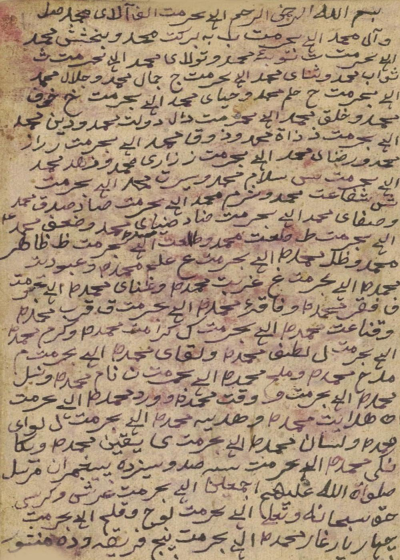 بسم الله الرحمن الرحيم الهى بحرمت الف آلاى محمد صل
و آل محمد الهى بحرمت ب به بركت محمد و بخشش محمد
الهى بحرمت ت توبه محمد و تولاى محمد الهى بحرمت ث
ثواب محمد و ثناى محمد الهى بحرمت ج جمال محمد و جلال محمد
الهى بحرمت ح حلم محمد و حياى محمد الهى بحرمت خ خوف
محمد و خلق محمد الهى بحرمت دال دولت محمد و دين محمد
الهى بحرمت ذ ذات محمد و ذوق محمد الهى بحرمت ر
محمد و رضاى محمد الهى بحرمت ز زارى محمد و زهد محمد
الهى بحرمت س سلام محمد و سيرت محمد الهى بحرمت
ش شفاعت محمد و شرم محمد الهى بحرمت صاد صدق محمد
و صفاى محمد الهى بحرمت ضاد ضياى محمد و ضعف محمد
الهى بحرمت ط طلعت محمد و طاعت محمد الهى بحرمت ظ ظاهر
محمد و ظل محمد الهى بحرمت ع علم محمد و
محمد الهى بحرمت غ غربت محمد و غناى محمد الهى بحرمت
ف فقر محمد و فاقه محمد الهى بحرمت ق قرب محمد
و قناعت محمد الهى بحرمت ك كرامت محمد و كرم محمد
الهى بحرمت ل لطف محمد و لقاى محمد الهى بحرمت م
مدح محمد و محمد الهى بحرمت ن نام محمد و
محمد الهى بحرمت و وقت محمد و ورد محمد الهى بحرمت
ه هدايت محمد و هديه محمد الهى بحرمت ل لواى
محمد و لسان محمد الهى بحرمت ى يقين محمد و
محمد الهى بحرمت سيصد و سيزده پيغمبران مرسل
صلواة الله عليهم اجمعين الهى بحرمت عرش و كرسى
حق سبحانه و تعالى الهى بحرمت لوح و قلم الهى بحرمت
چهار يار محمد الهى بحرمت پنج و ده